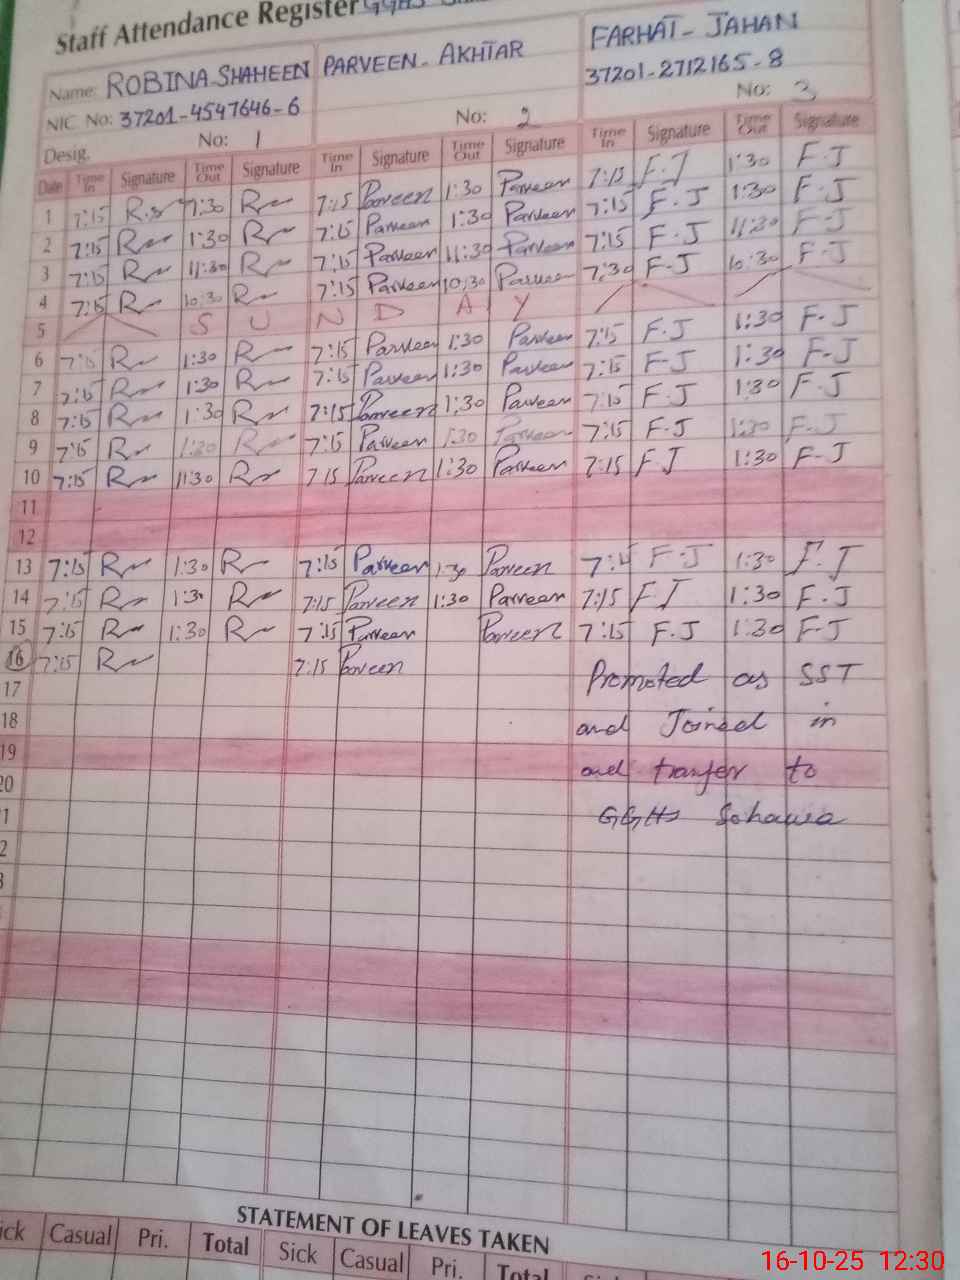 Staff Attendance Register GGHS
Name: ROBINA SHAHEEN PARVEEN - AKHTAR FARHAT - JAHAN
NIC. No: 37201-4547646-6 37201-2712165-8
Desig. No: 1 No: 2 No: 3
Date Time In Signature Time Out Signature Time In Signature Time Out Signature Time In Signature Time Out Signature
1 7:15 R.S 1:30 R 7:15 Parveen 1:30 Parveen 7:15 F.J 1:30 F.J
2 7:15 R 1:30 R 7:15 Parveen 1:30 Parveen 7:15 F.J 1:30 F.J
3 7:15 R 11:30 R 7:15 Parveen 11:30 Parveen 7:15 F.J 11:30 F.J
4 7:15 R 10:30 R 7:15 Parveen 10:30 Parveen 7:30 F.J 10:30 F.J
5 S U N D A Y
6 7:15 R 1:30 R 7:15 Parveen 1:30 Parveen 7:15 F.J 1:30 F.J
7 7:15 R 1:30 R 7:15 Parveen 1:30 Parveen 7:15 F.J 1:30 F.J
8 7:15 R 1:30 R 7:15 Parveen 1:30 Parveen 7:15 F.J 1:30 F.J
9 7:15 R 1:30 R 7:15 Parveen 1:30 Parveen 7:15 F.J 1:30 F.J
10 7:15 R 11:30 R 7 15 Parveen 1:30 Parveen 7:15 F.J 1:30 F-J
11
12
13 7:15 R 1:30 R 7:15 Parveen 1:30 Parveen 7:15 F.J 1:30 F.J
14 7:15 R 1:3 R 7:15 Parveen 1:30 Parveen 7:15 F.J 1:30 F.J
15 7:15 R 1:30 R 7:15 Parveen Parveen 7:15 F.J 1:30 F.J
16 7:15 R 7:15 Parveen
17 Promoted as SST
18 and Joined in
19 and tranfer to
20 GGHS Sohawa
STATEMENT OF LEAVES TAKEN
Casual Pri. Total Sick Casual Pri. Total
16-10-25 12:30